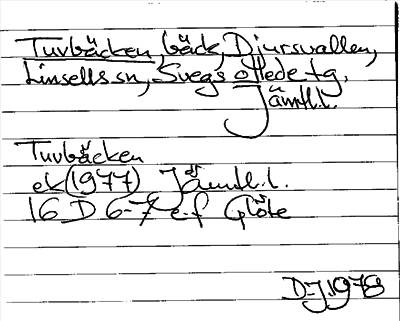 Tuvbäcken, bäck, Djursvallen,
Linsells sn, Svegs ottedetg,
Jämtl.l.
Tuvbäcken
ek(1977) Jämtl.l.
16 D 6-7 e-f Glöte
D-J 1978